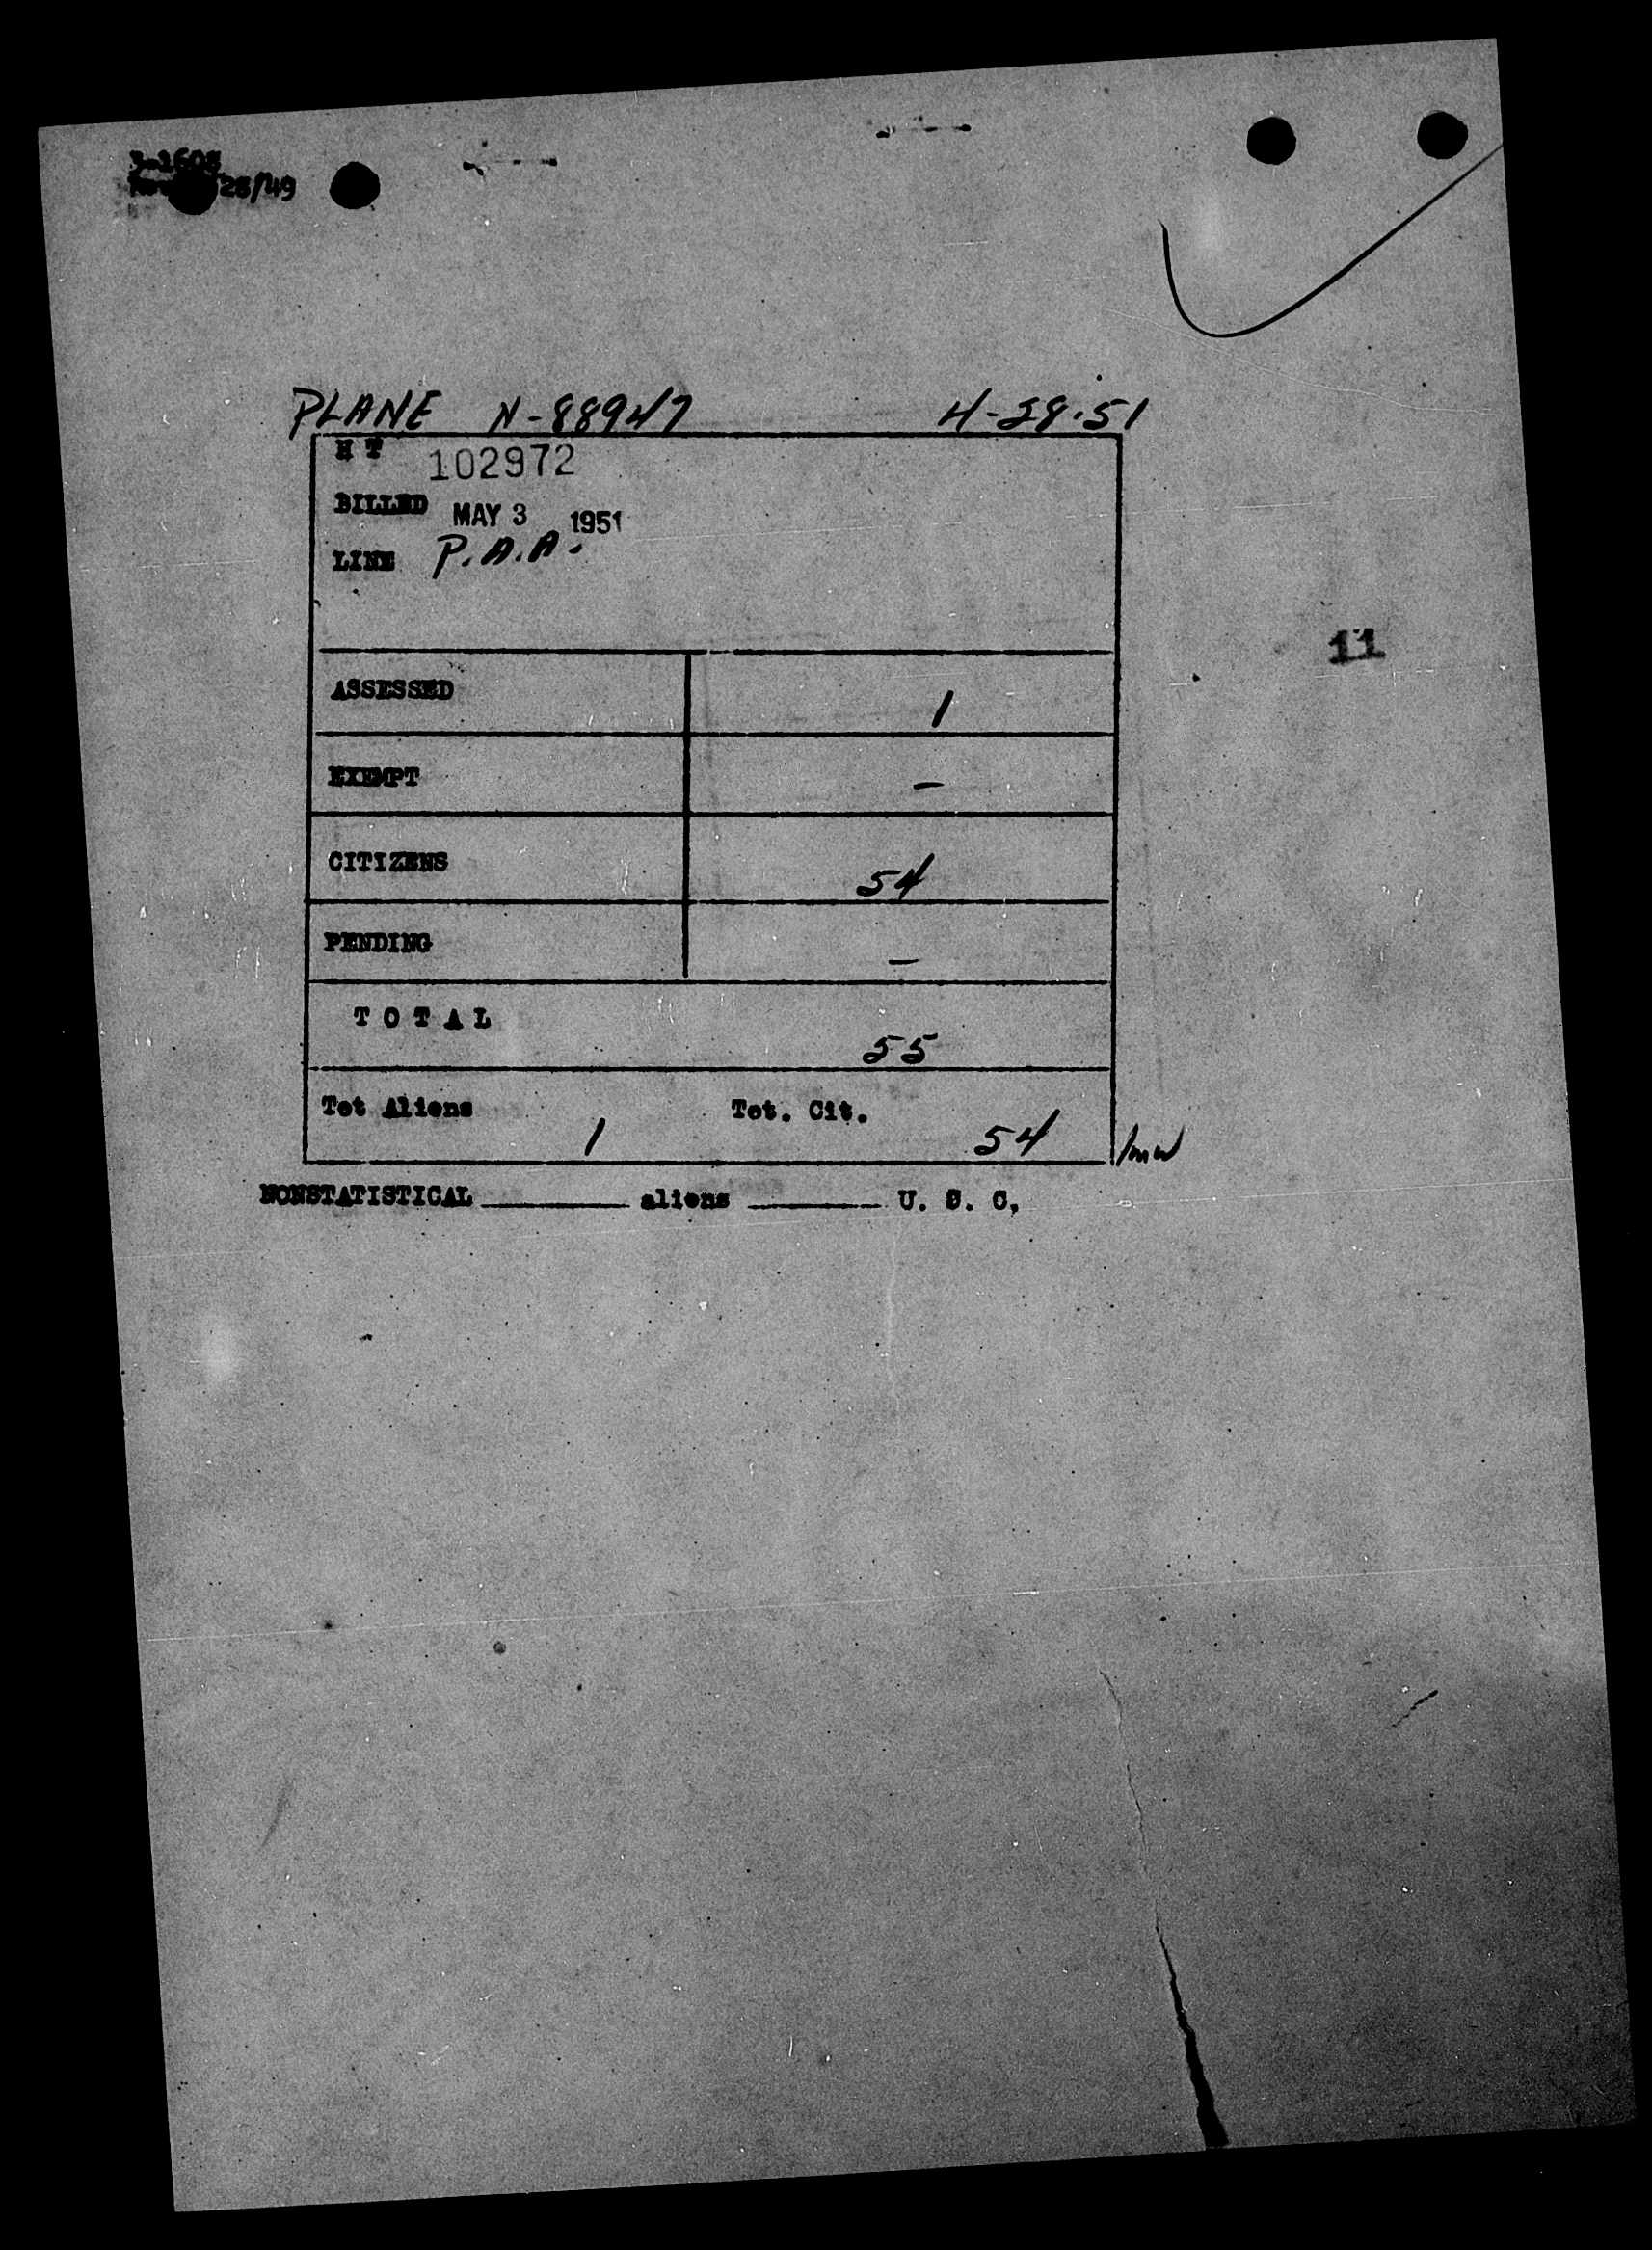 3-1608
28/49
PLANE N-88947 4-28-51
H T 102972
BILLED MAY 3 1951
LINE P.A.A.
11
ASSESSED 1
EXEMPT –
CITIZENS 54
PENDING –
T O T A L 55
Tot Aliens 1 Tot. Cit. 54 /mw
NONSTATISTICAL ______ aliens ______ U. S. C.